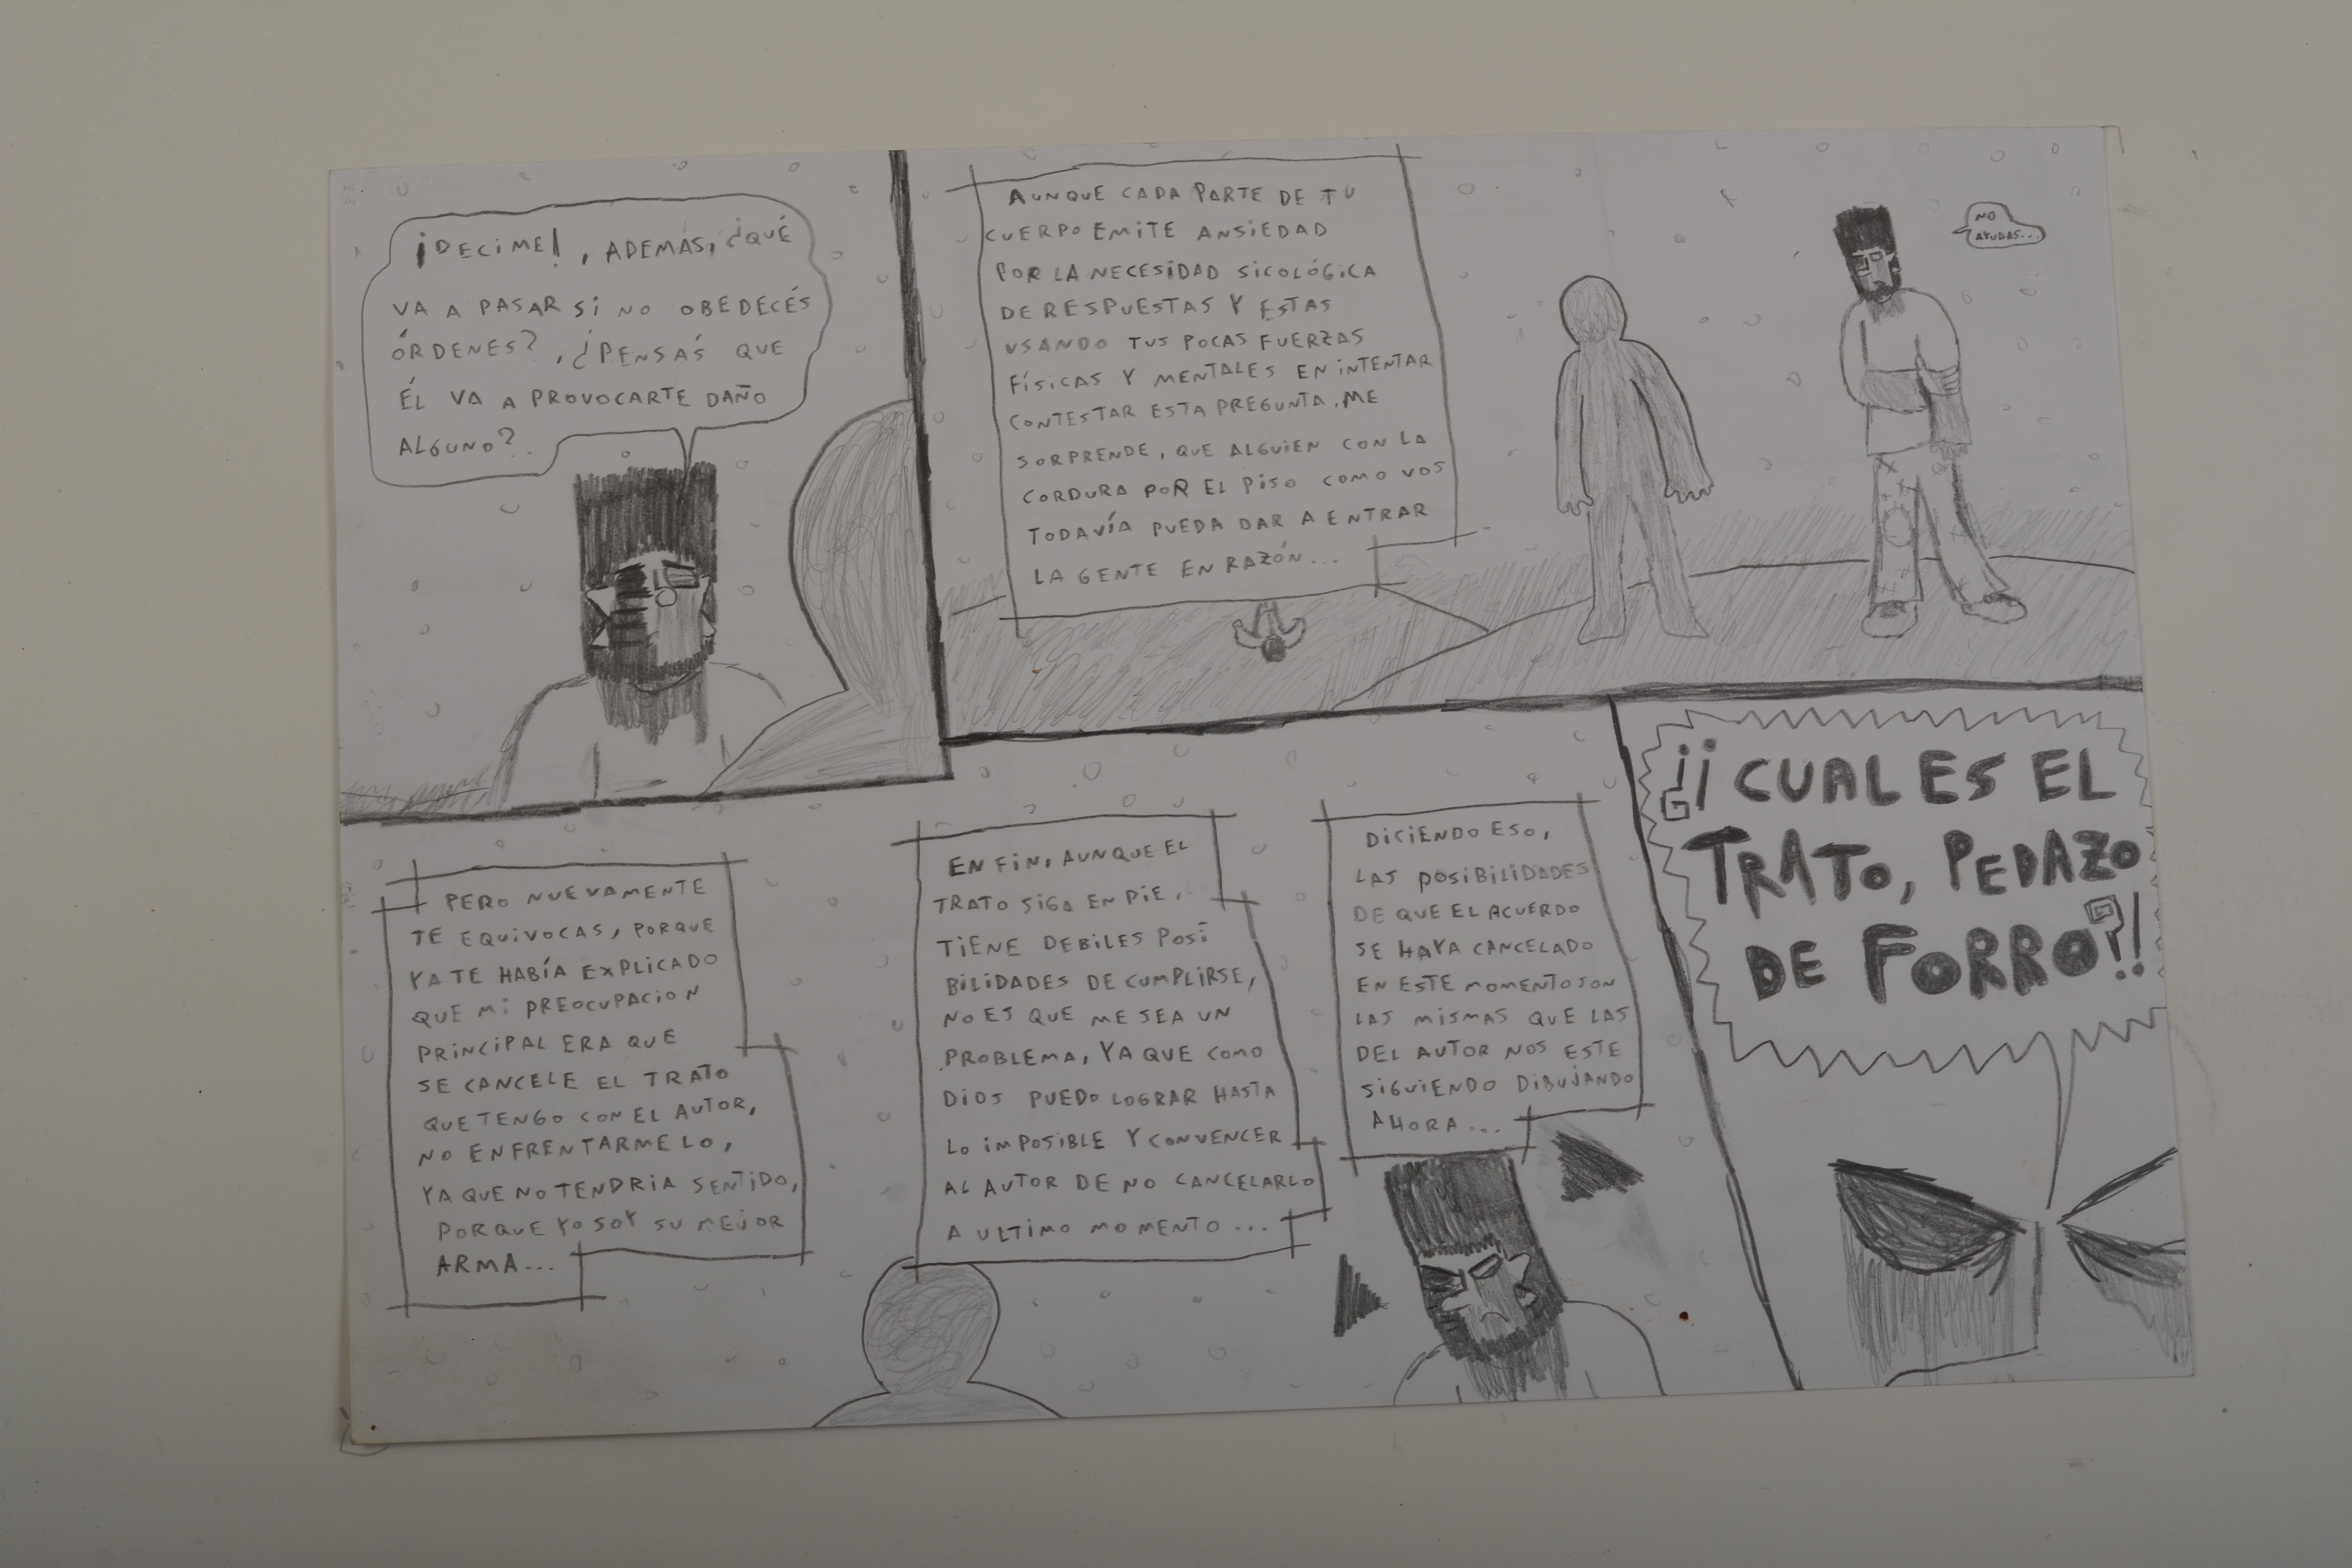 ¡DECIME!, ADEMÁS, ¿QUÉ
VA A PASAR SI NO OBEDECÉS
ÓRDENES?, ¿PENSÁS QUE
ÉL VA A PROVOCARTE DAÑO
ALGUNO?.
AUNQUE CADA PARTE DE TU
CUERPO EMITE ANSIEDAD
POR LA NECESIDAD SICOLÓGICA
DE RESPUESTAS Y ESTAS
USANDO TUS POCAS FUERZAS
FÍSICAS Y MENTALES EN INTENTAR
CONTESTAR ESTA PREGUNTA. ME
SORPRENDE, QUE ALGUIEN CON LA
CORDURA POR EL PISO COMO VOS
TODAVÍA PUEDA DAR A ENTRAR
LA GENTE EN RAZÓN...
NO
AYUDAS...
PERO NUEVAMENTE
TE EQUIVOCAS, PORQUE
YA TE HABÍA EXPLICADO
QUE MI PREOCUPACION
PRINCIPAL ERA QUE
SE CANCELE EL TRATO
QUE TENGO CON EL AUTOR,
NO ENFRENTARMELO,
YA QUE NO TENDRIA SENTIDO,
PORQUE YO SOY SU MEJOR
ARMA...
EN FIN, AUNQUE EL
TRATO SIGA EN PIE,
TIENE DEBILES POSI
BILIDADES DE CUMPLIRSE,
NO ES QUE ME SEA UN
PROBLEMA, YA QUE COMO
DIOS PUEDO LOGRAR HASTA
LO IMPOSIBLE Y CONVENCER
AL AUTOR DE NO CANCELARLO
A ULTIMO MOMENTO...
DICIENDO ESO,
LAS POSIBILIDADES
DE QUE EL ACUERDO
SE HAYA CANCELADO
EN ESTE MOMENTO SON
LAS MISMAS QUE LAS
DEL AUTOR NOS ESTE
SIGUIENDO DIBUJANDO
AHORA...
¿¡¡CUAL ES EL
TRATO, PEDAZO
DE FORRO?!!